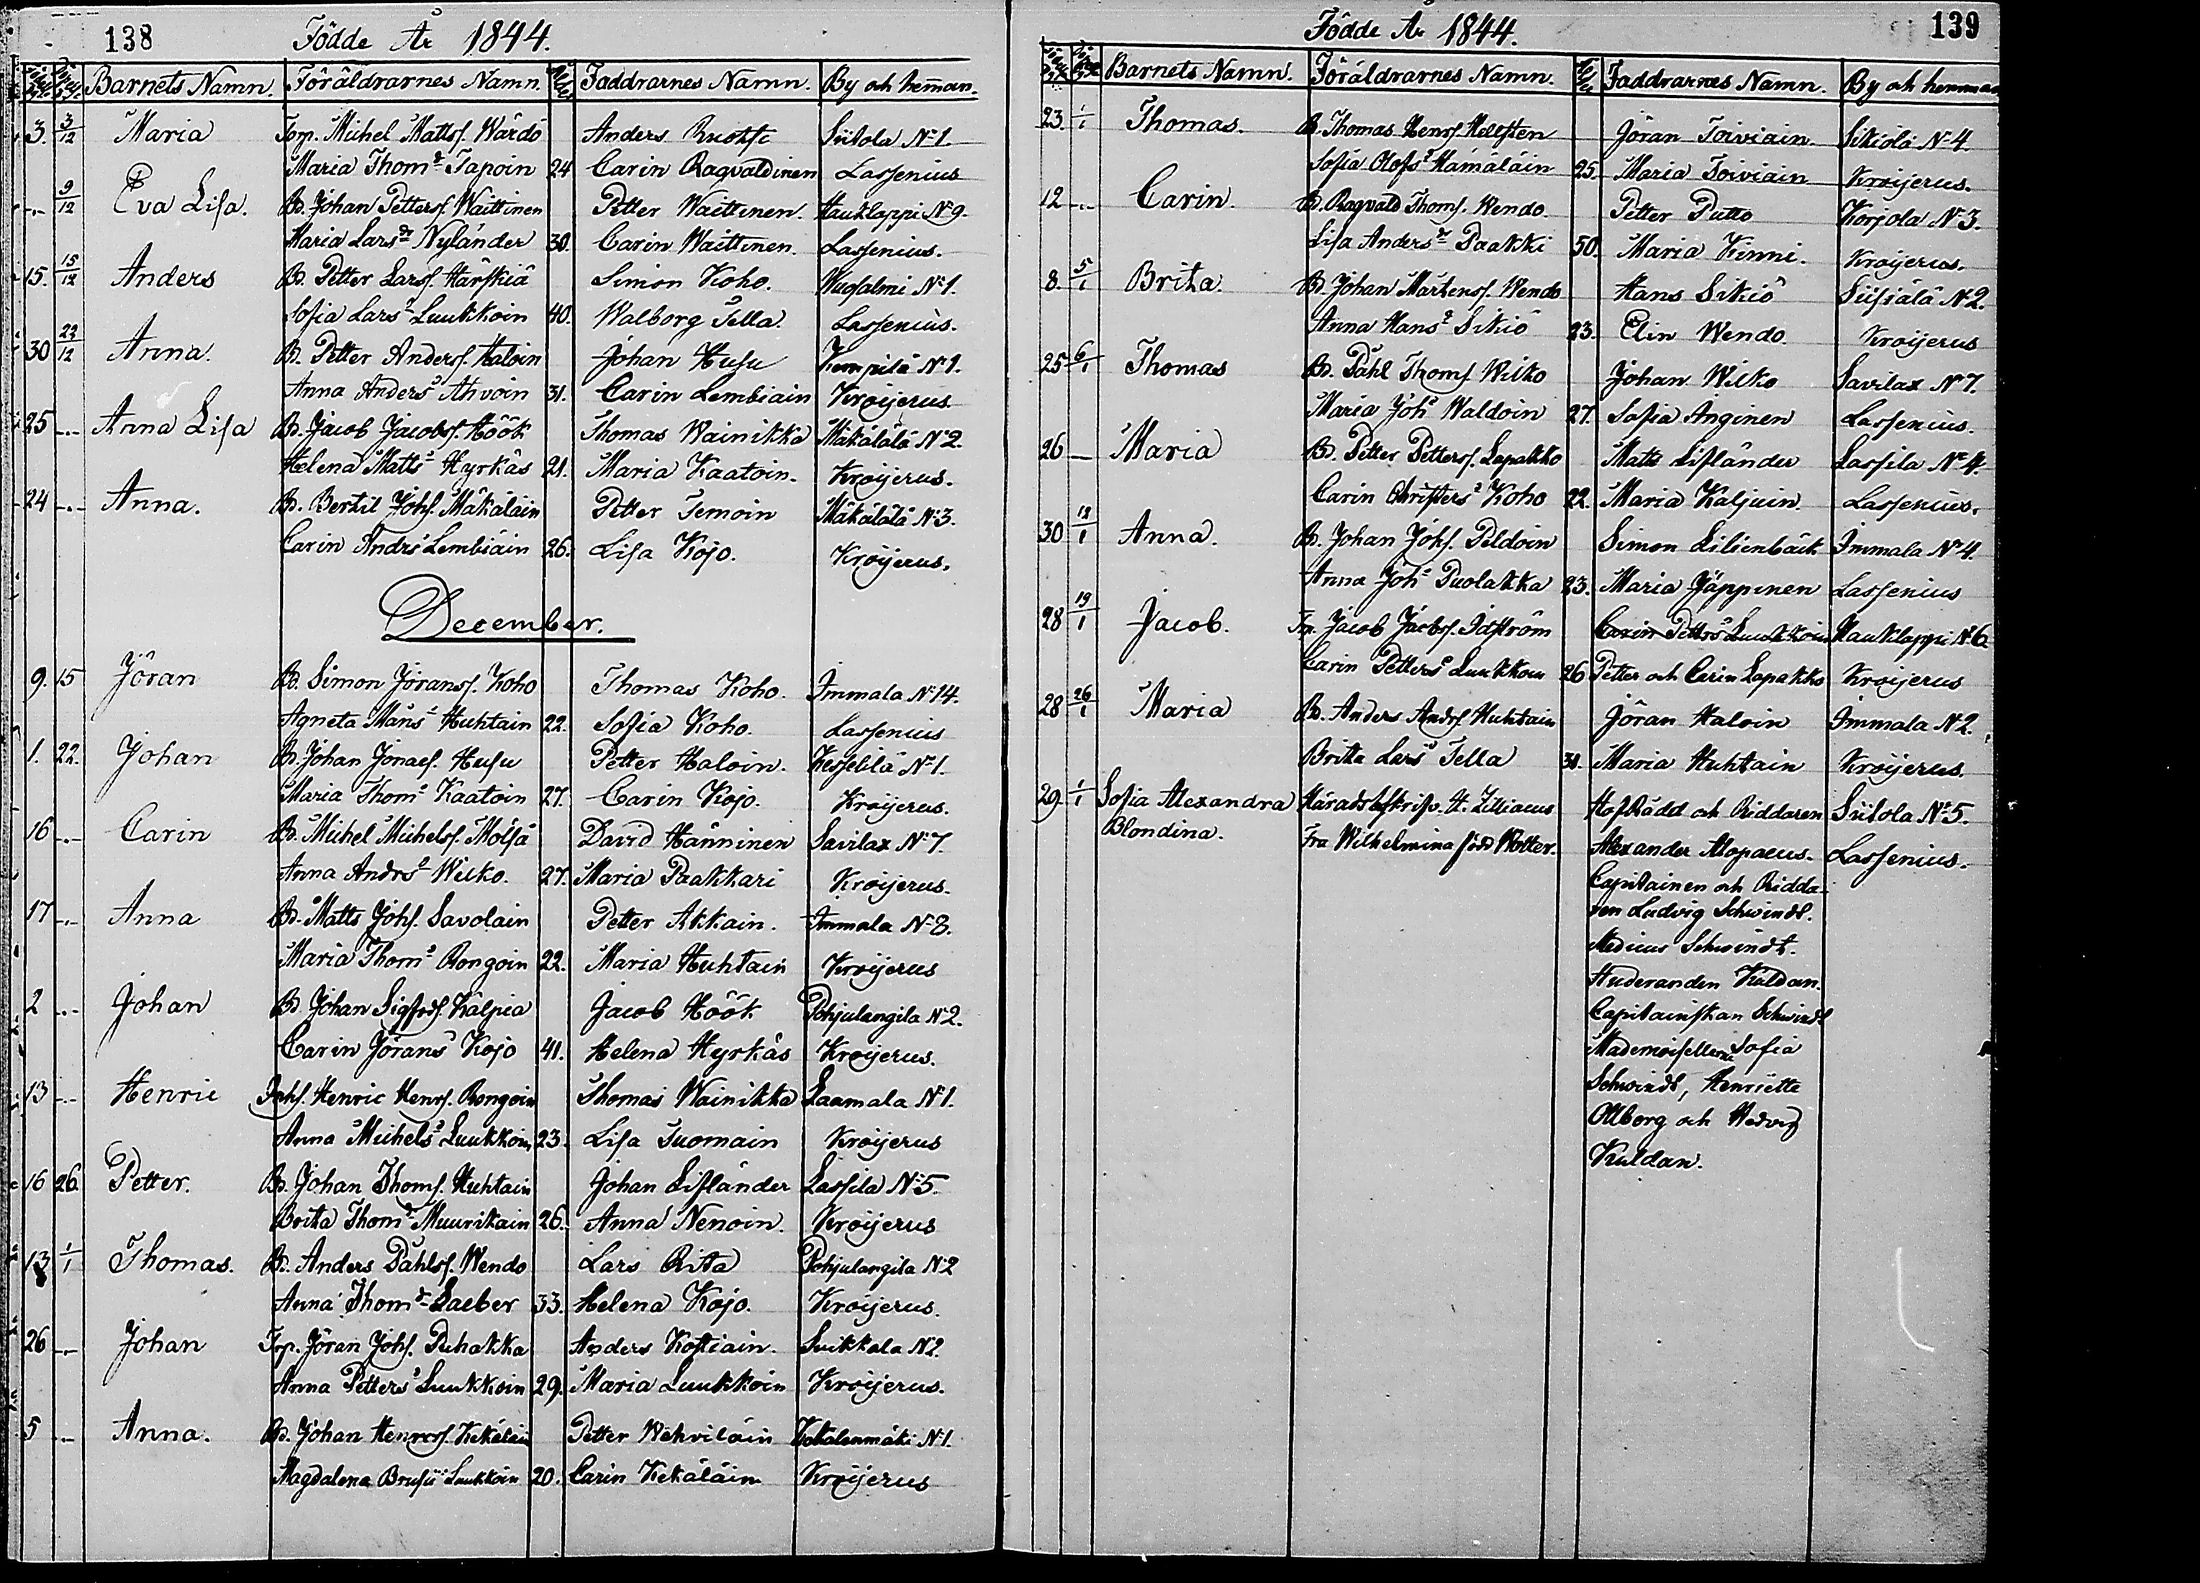 138 Födde År 1844.
Barnets Namn. Föräldrarnes Namn. Faddrarnes Namn. By och hemman.
3. 3/12 Maria Torp. Michel Mattsf. Wärdö Anders Ruokse Siitola No 1.
Maria Thomsdr Tapoin 24 Carin Ragvaldinen Lassenius
-.- 9/12 Eva Lisa. Bd. Johan Pettersf. Waittinen Petter Waittinen. Hauklappi No 9.
Maria Larsdr Nyländer 30. Carin Waittinen. Lassenius.
15. 15/12 Anders Bd. Petter Larsf. Härskiä Simon Koho. Wuosalmi No 1.
Sofia Larsdr Luukkoin 40. Walborg Tella. Lassenius.
30 22/12 Anna. Bd. Petter Andersf. Haloin Johan Husu Kempilä No 1.
Anna Andersdr Ahvoin 31. Carin Lembiain Kröijerus
25 -.- Anna Lisa Bd. Jacob Jacobsf. Höök Thomas Wainikka Mäkälälä No 2.
Helena Mattsdr Hyrkäs 21. Maria Kaatoin. Kröijerus.
24 -.- Anna. Bd. Bertil Johsf. Mäkäläin Petter Temoin Mäkälälä No 3.
Carin Andrsdr Lembiäin 26. Lisa Kojo. Kröijerus.
December.
9. 15 Jöran Bd. Simon Göransf. Koho Thomas Koho. Immala No 14.
Agneta Månsdr Huhtain 22. Sofia Koho. Lassenius
1. 22. Johan Bd. Johan Jonaef. Husu Petter Haloin. Kesselilä No 1.
Maria Thomsdr Kaatoin 27. Carin Kojo. Kröijerus.
16 -.- Carin Bd. Michel Michelsf. Mölsä David Hänninen Savilax No 7.
Anna Andrsdr Wilko. 27. Maria Paakkari Kröijerus.
17 -.- Anna Bd. Matts Johsf. Savolain Petter Akkain. Immala No 3.
Maria Thomsdr Rongoin 22. Maria Huhtain Kröijerus
2 -.- Johan Bd Johan Sigfrdsf. Kälpiä Jacob Höök Pohjulangila No 2.
Carin Göransdr Kojo 41. Helena Hyrkäs Kröijerus.
13 -.- Henric Inhs. Henric Henrsf. Rongoin Thomas Wainikka Laamala No 1.
Anna Michelsdr Luukkoin 23. Lisa Tuomain Kröijerus
16 26. Petter. Bd. Johan Thomsf. Huhtain Johan Lifländer Lassila No 5.
Brita Thomsdr Muurikain 26. Anna Nenoin. Kröijerus
13 1/1 Thomas. Bd. Anders Påhlsf. Wendo Lars Rita Pohjulangila No 2
Anna Thomsdr Laeber 33. Helena Kojo. Kröijerus.
26 -.- Johan Torp. Jöran Johsf. Puhakka Anders Kostiain. Suikkala No 2.
Anna Pettersdr Luukkoin 29. Maria Luukkoin Kröijerus.
5 -.- Anna. Bd. Johan Henrcsf. Kekäläin Petter Wehviläin Kokalenmäki No 1.
Magdalena Luukkoin 20. Carin Kekäläin Kröijerus
Födde År 1844. 139
Barnets Namn. Föräldrarnes Namn. Faddrarnes Namn. By och hemman
23. 1/1 Thomas. Bd. Thomas Henrsf. Hellsten Jöran Toiviain. Sikiölä No 4
Sofia Olofsdr Hämäläin 25. Maria Toiviain Kröijerus.
12 -.- Carin. Bd. Ragvald Thomsf. Wendo. Petter Putto Korjola No 3.
Lisa Andersdr Paakki 50. Maria Kinni. Kröijerus.
8. 5/1 Brita. Bd. Johan Mårtensf. Wendo Hans Sikiö Siisiälä No 2.
Anna Hansdr Sikiö 23. Elin Wendo Kröijerus
25 6/1 Thomas Bd. Påhl Thomsf Wilko Johan Wilko Savilax No 7.
Maria Johsdr Waldoin 27. Sofia Anginen Lassenius.
26 — Maria Bd. Petter Pettersf. Lapakko Matts Lifländer Lassila No 4.
Carin Christersdr Koho 22. Maria Kaljuin. Lassenius.
30 18/1 Anna. Bd. Johan Johsf. Peldoin Simon Lilienbäck Immala No 4.
Anna Johsdr Puolakka 23. Maria Jäppinen Lassenius
28 19/1 Jacob. Tp. Jacob Jacobsf. Idström Carin Pettersdr Luukkoin Hauklappi No 6.
Carin Pettersdr Luukkoin 26 Petter och Carin Lapakko Kröijerus
28 26/1 Maria Bd. Anders Andrsf. Huhtain Jöran Haloin Immala No 2.
Britta Larsdr Tella 31. Maria Huhtain Kröijerus.
29. 1/1 Sofia Alexandra Häradshfskrifv. H. Zilliacus Hofrådd och Riddaren Siitola No 5.
Blondina. Fru Wilhelmina född Molter. Alexander Alopaeus. Lassenius.
Capitainen och Ridda-
ren Ludvig Schwindt.
Medicus Schwindt.
Studeranden Kuldan.
Capitainskan Schwindt
Mademoisellerne Sofia
Schwindt, Henriette
Ollborg och Hedvig
Kuldan.